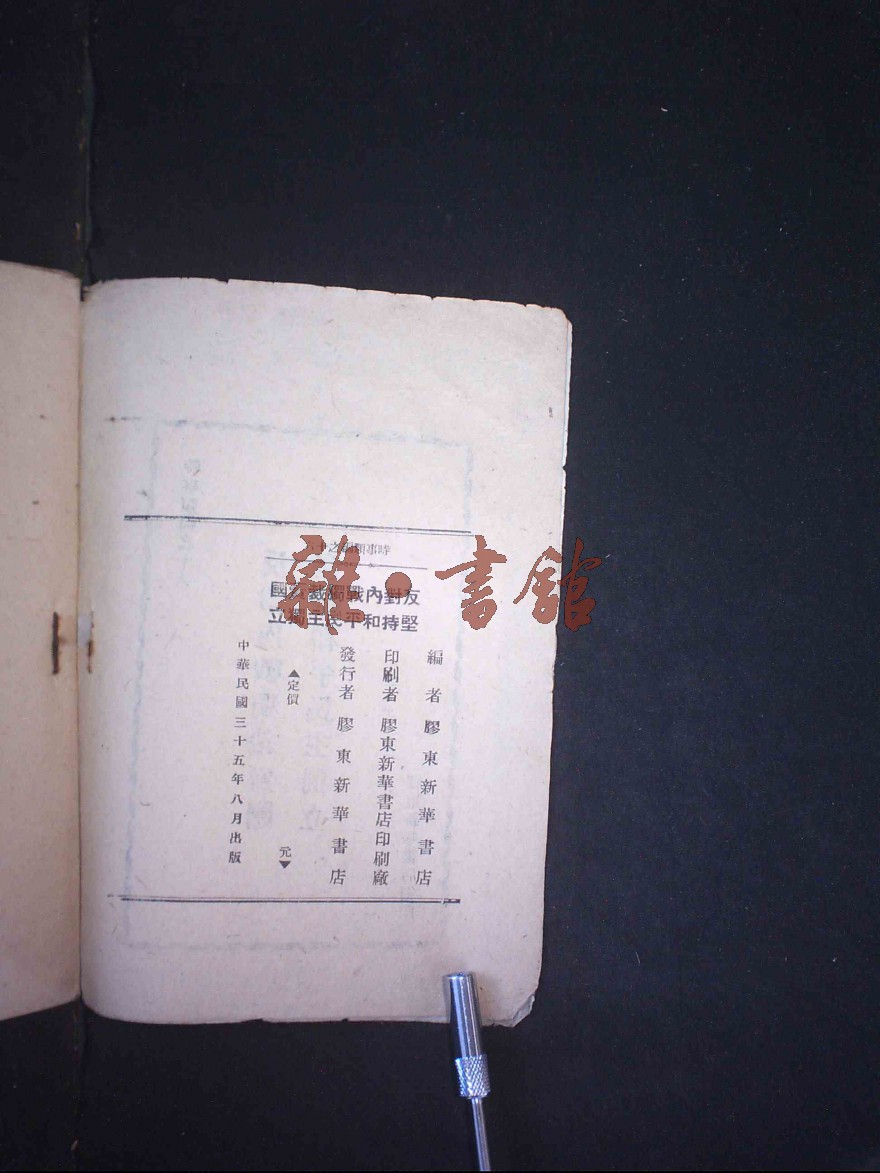 時事類編之十
反對內戰獨裁賣國
堅持和平民主獨立
編者 膠東新華書店
印刷者 膠東新華書店印刷廠
發行者 膠東新華書店
▲定價 元▼
中華民國三十五年八月出版
雜·書館